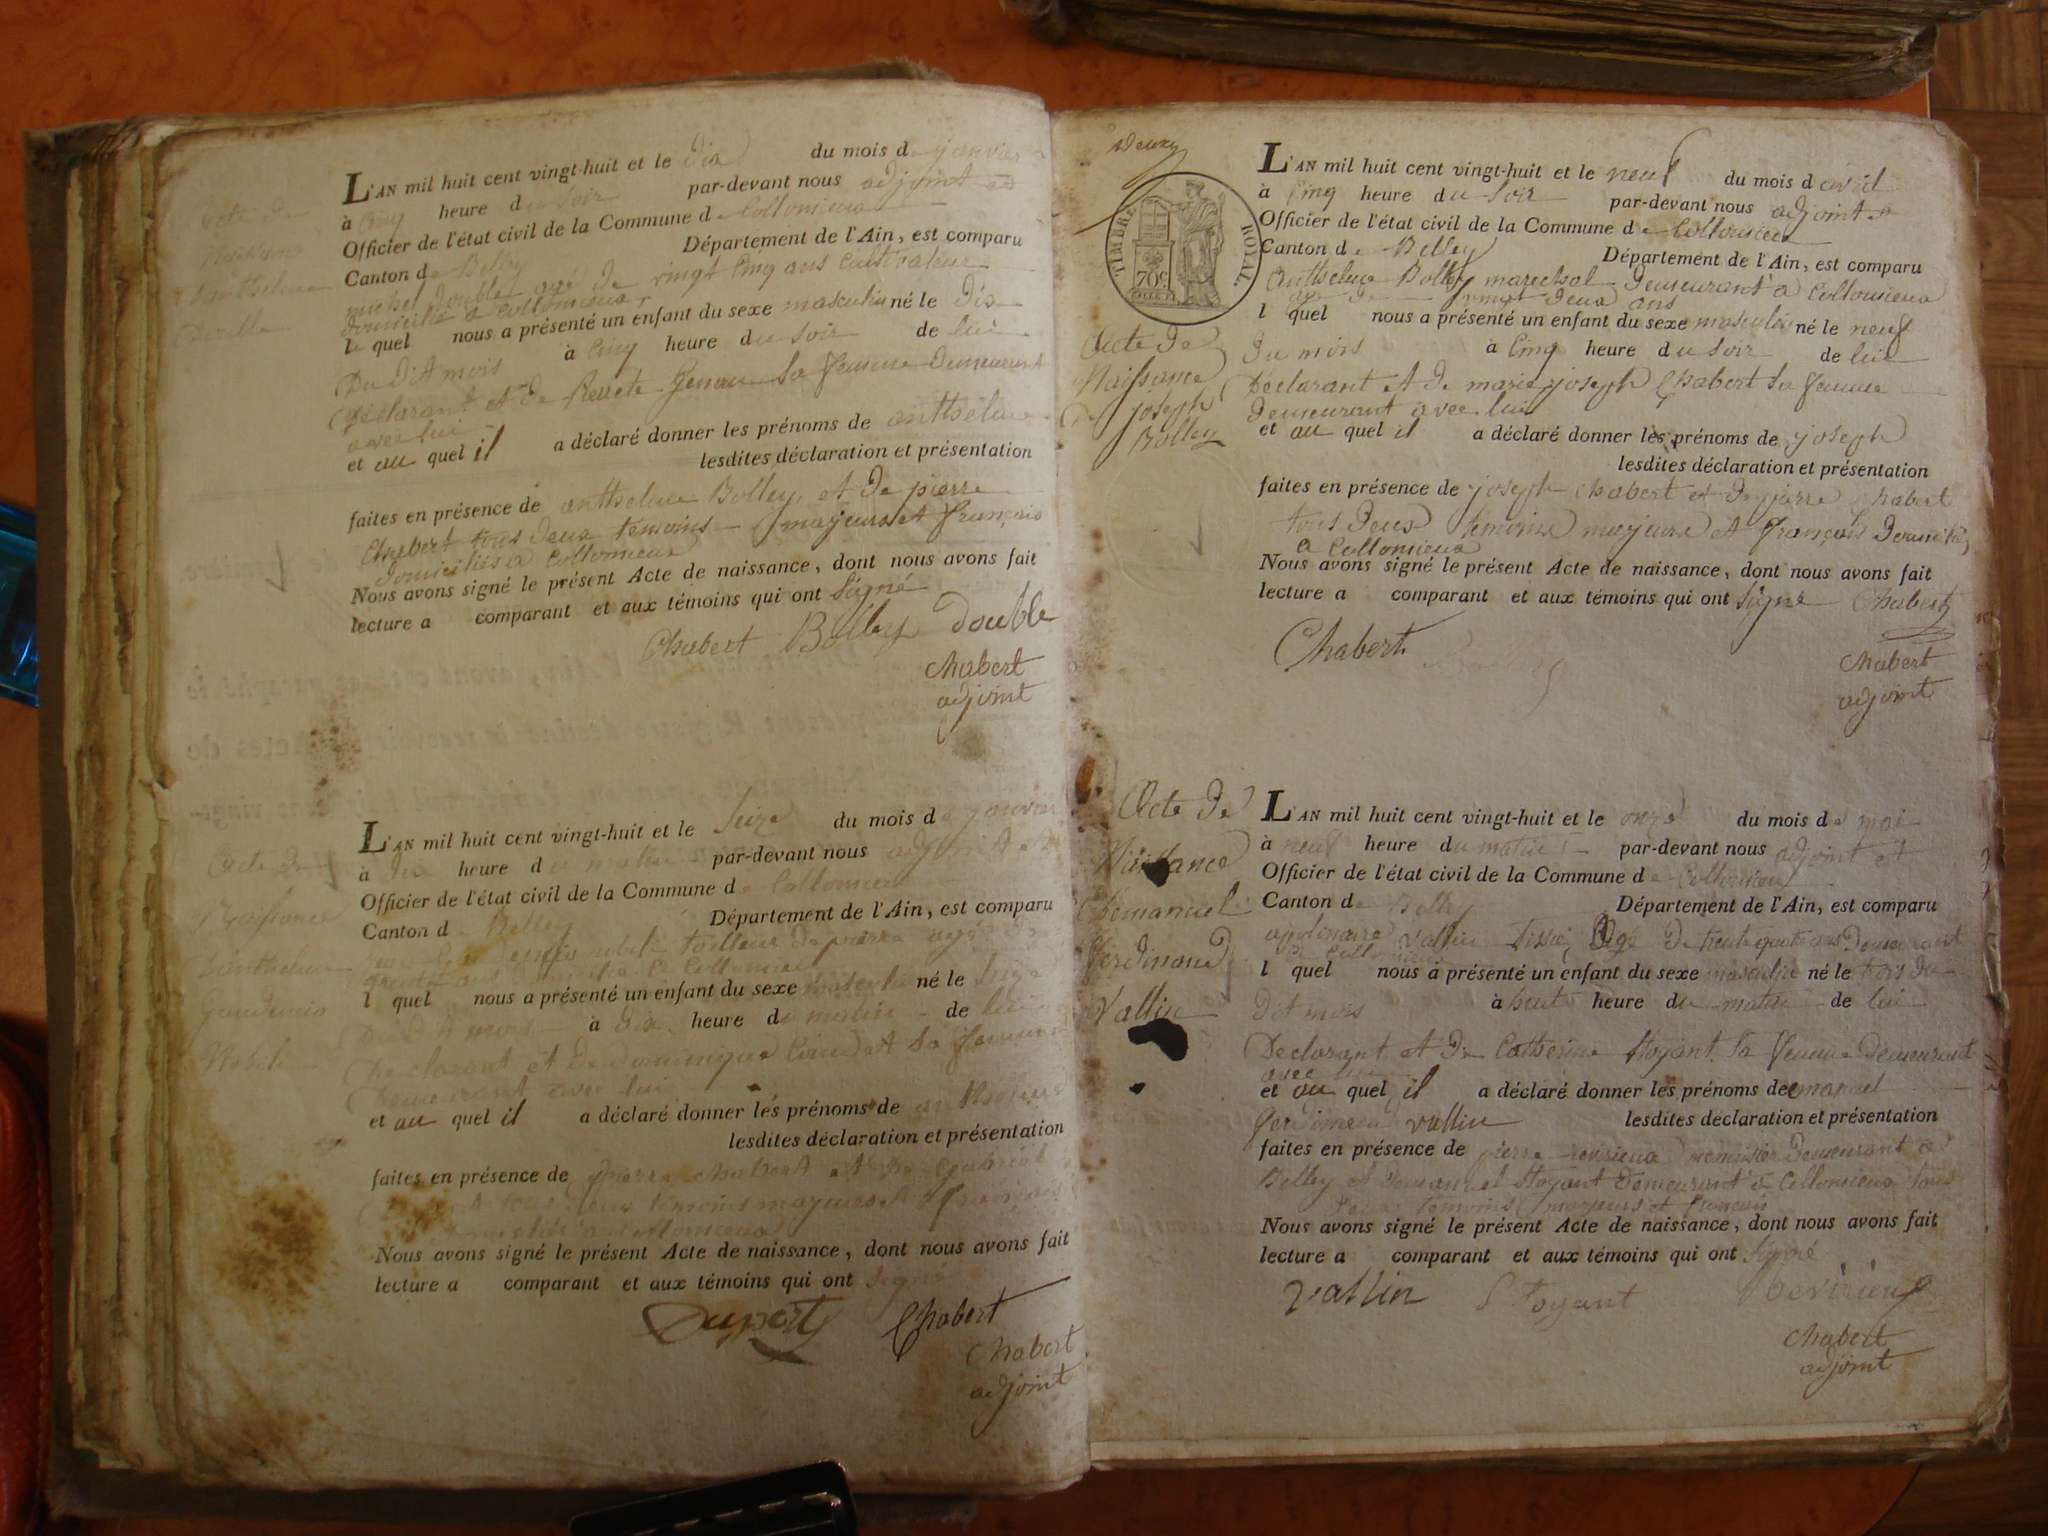 Acte de
Naissance
anthelme
Double
L'AN mil huit cent vingt-huit et le dix du mois de janvier
à cinq heure du soir par-devant nous adjoint et
Officier de l'état civil de la Commune de Collomieux
Canton de Belley Département de l'Ain, est comparu
michel Double agé de vingt cinq ans cultivateur
domicilié a Collomieux
le quel nous a présenté un enfant du sexe masculin né le dix
Du dit mois à cinq heure du soir de lui
Déclarant et de Jenau sa femme Demeurant
avec lui
et au quel il a déclaré donner les prénoms de anthelme
lesdites déclaration et présentation
faites en présence de anthelme Bolley et de pierre
Chabert tous deux témoins majeurs et français
Domiciliés a Collomieux
Nous avons signé le présent Acte de naissance, dont nous avons fait
lecture a comparant et aux témoins qui ont Signé
Chabert Bolley Double
Chabert
adjoint
Acte de
Naissance
anthelme
L'AN mil huit cent vingt-huit et le Seize du mois de janvier
à dix heure du matin par-devant nous adjoint et
Officier de l'état civil de la Commune de Collomieux
Canton de Belley Département de l'Ain, est comparu
tailleur de pierre agé de
trente ans a Collomieux
l quel nous a présenté un enfant du sexe masculin né le Seize
Du dit mois à dix heure du matin de lui
Declarant et de Dominique sa femme
Demeurant avec lui
et au quel il a déclaré donner les prénoms de anthelme
lesdites déclaration et présentation
faites en présence de pierre Chabert et de
tous deux témoins majeurs et français
Collomieux
Nous avons signé le présent Acte de naissance, dont nous avons fait
lecture a comparant et aux témoins qui ont Signé
Duport Chabert
Chabert
adjoint
TIMBRE ROYAL
70c.
Acte de
Naissance
De joseph
Bolley
L'AN mil huit cent vingt-huit et le neuf du mois d avril
à cinq heure du soir par-devant nous adjoint et
Officier de l'état civil de la Commune de Collomieux
Canton de Belley Département de l'Ain, est comparu
Anthelme Bolley marechal Demeurant a Collomieux
agé de vingt deux ans
l quel nous a présenté un enfant du sexe masculin né le neuf
du mois à cinq heure du soir de lui
Déclarant et de marie joseph Chabert sa femme
Demeurant avec lui
et au quel il a déclaré donner les prénoms de joseph
lesdites déclaration et présentation
faites en présence de joseph Chabert et de pierre Chabert
tous Deux témoins majeurs et français Domiciliés
a Collomieux
Nous avons signé le présent Acte de naissance, dont nous avons fait
lecture a comparant et aux témoins qui ont Signé Chabert
Chabert
Chabert
adjoint
Acte de
Naissance
Demanuel
Ferdinand
Vallin
L'AN mil huit cent vingt-huit et le onze du mois de mai
à neuf heure du matin par-devant nous adjoint et
Officier de l'état civil de la Commune de Collomieux
Canton de Belley Département de l'Ain, est comparu
appolinaire Vallin agé de trente quatre ans Demeurant
a Collomieux
l quel nous a présenté un enfant du sexe masculin né le trois du
Dit mois à huit heure du matin de lui
Declarant et de Catherine Stoyant sa femme Demeurant
avec lui
et au quel il a déclaré donner les prénoms de emanuel
ferdinand vallin lesdites déclaration et présentation
faites en présence de pierre revirieux menuisier Demeurant a
Belley et Demanuel Stoyant Demeurant à Collomieux tous
Deux témoins majeurs et français
Nous avons signé le présent Acte de naissance, dont nous avons fait
lecture a comparant et aux témoins qui ont Signé
Vallin Stoyant revirieux
Chabert
adjoint